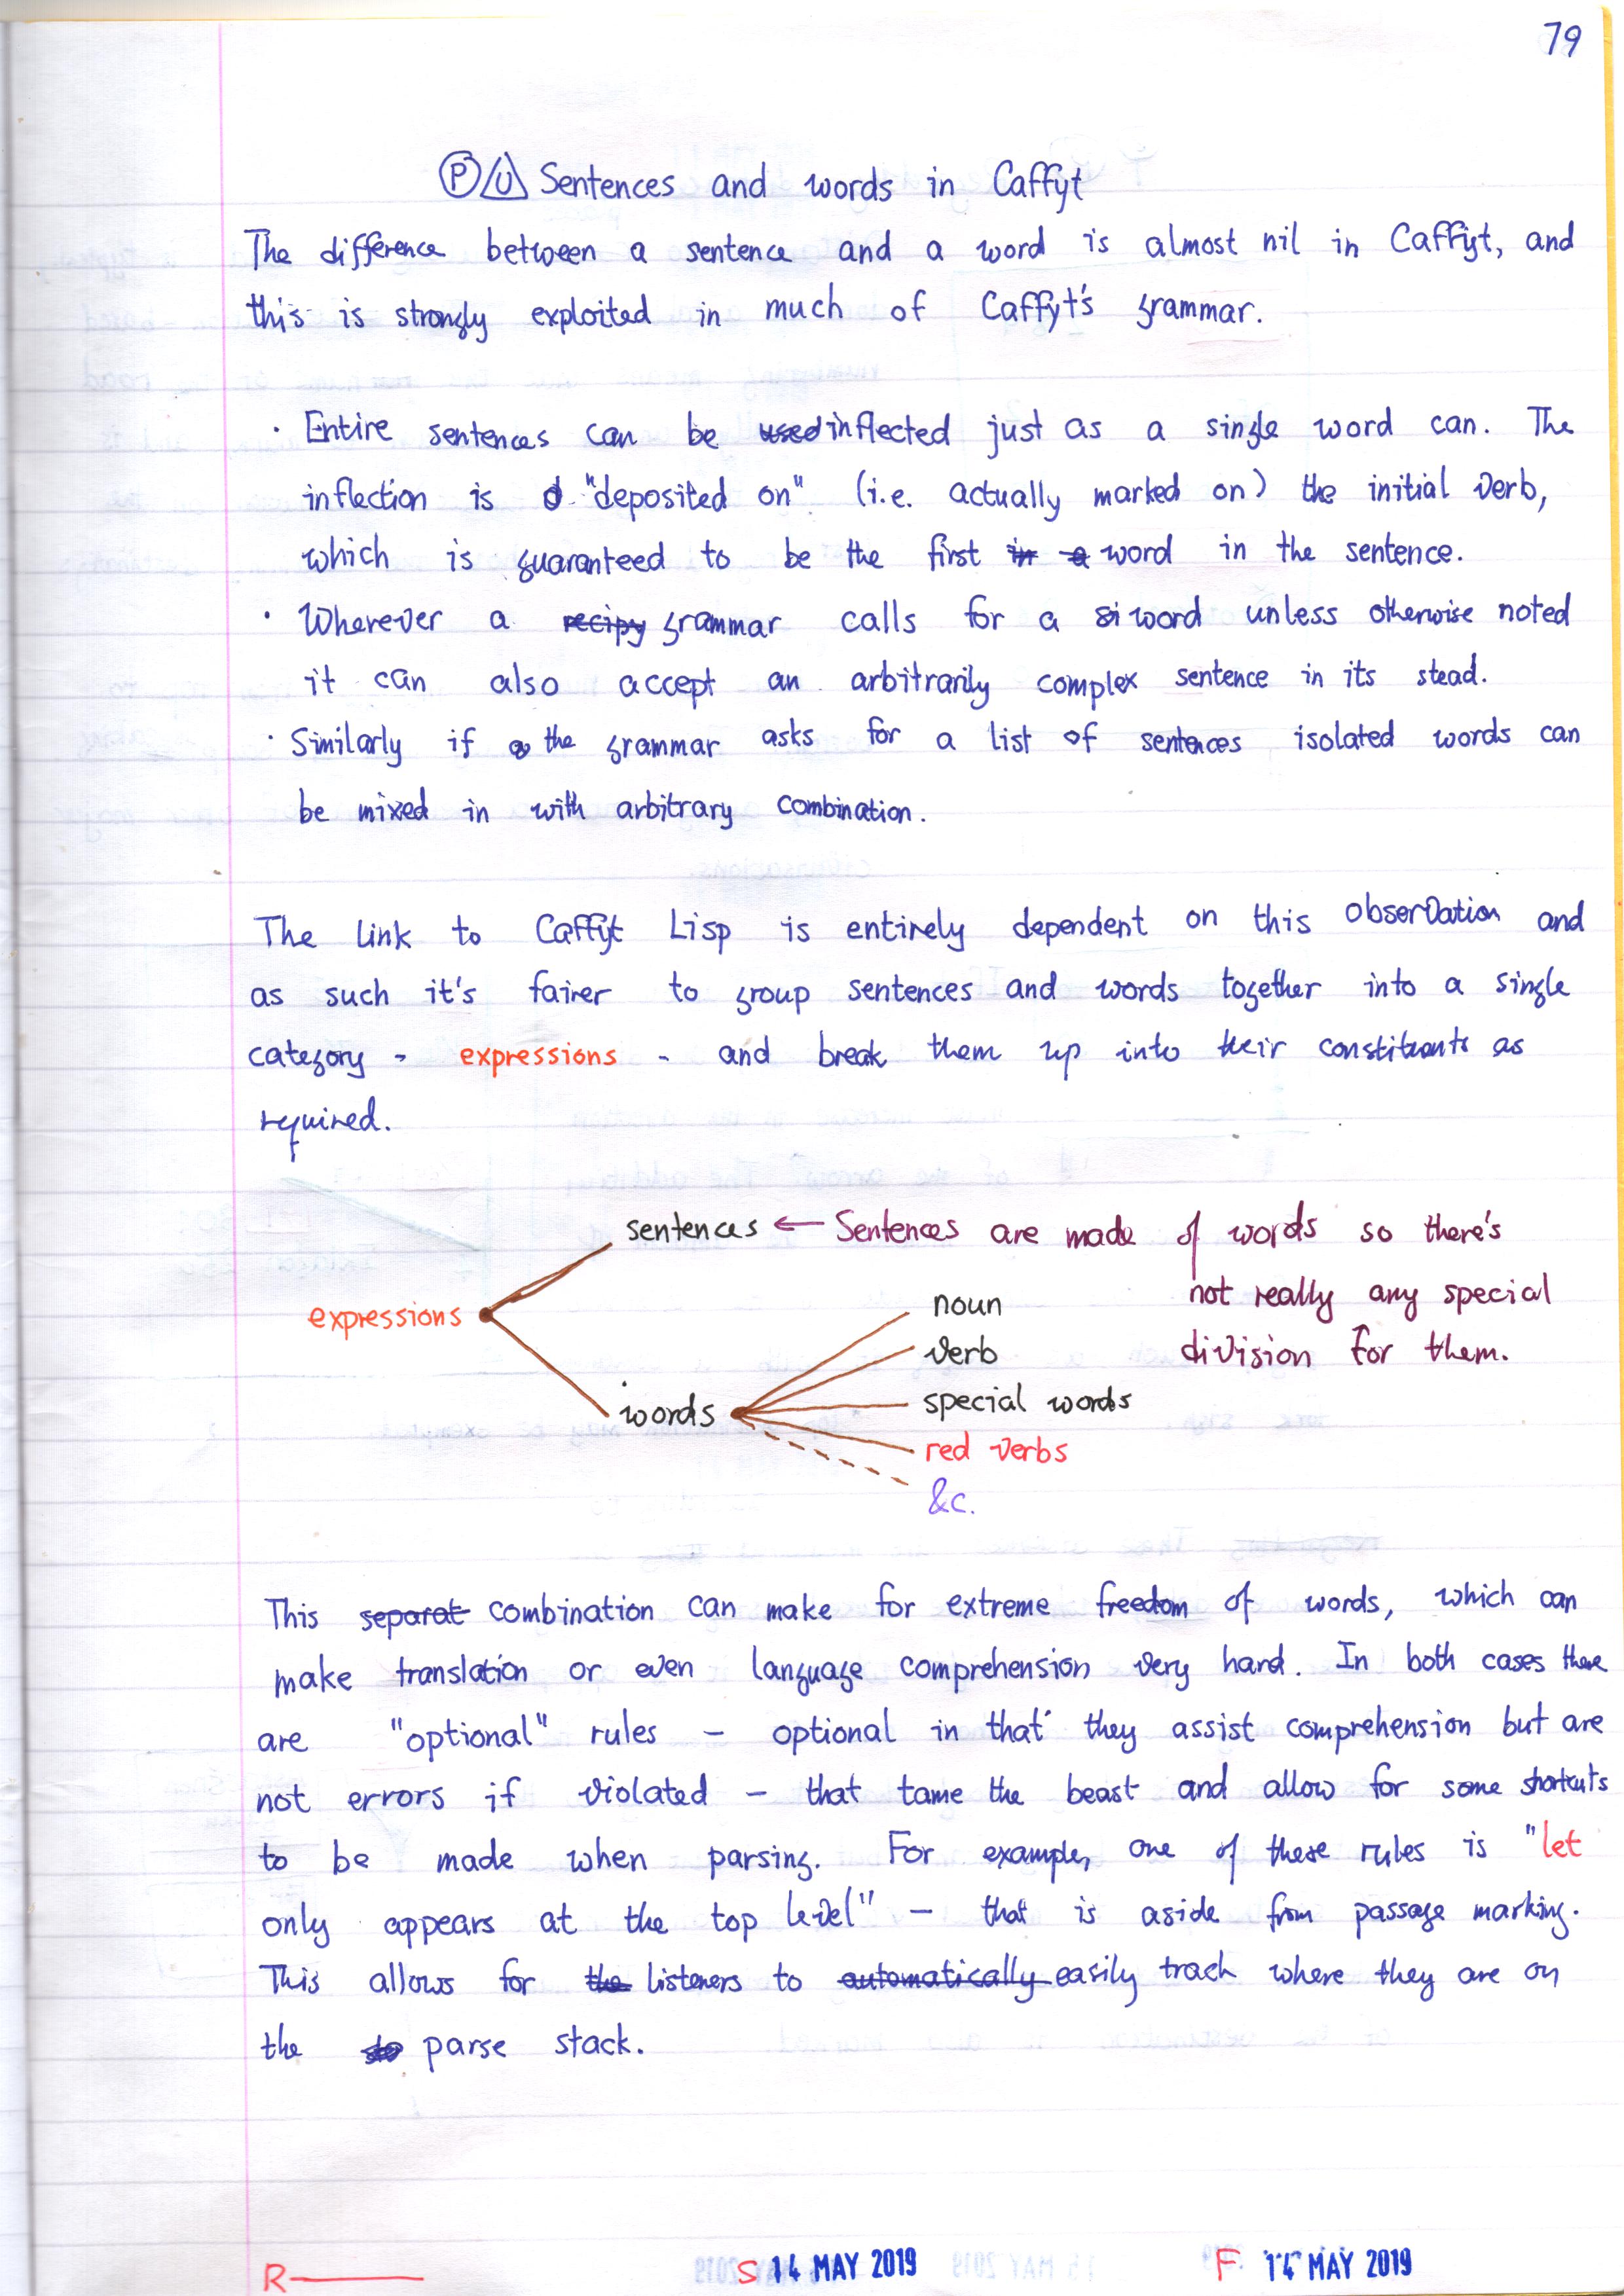 79
P U Sentences and words in Caffyt
The difference between a sentence and a word is almost nil in Caffyt, and
this is strongly exploited in much of Caffyt's grammar.
· Entire sentences can be used inflected just as a single word can. The
inflection is d "deposited on" (i.e. actually marked on) the initial verb,
which is guaranteed to be the first in a word in the sentence.
· Wherever a recipy grammar calls for a si word unless otherwise noted
it can also accept an arbitrarily complex sentence in its stead.
· Similarly if a the grammar asks for a list of sentences isolated words can
be mixed in with arbitrary combination.
The link to Caffyt Lisp is entirely dependent on this observation and
as such it's fairer to group sentences and words together into a single
category - expressions - and break them up into their constituents as
required.
sentences ← Sentences are made of words so there's
not really any special
division for them.
expressions
words
noun
verb
special words
red verbs
&c.
This separat combination can make for extreme freedom of words, which can
make translation or even language comprehension very hard. In both cases there
are "optional" rules – optional in that they assist comprehension but are
not errors if violated – that tame the beast and allow for some shortcuts
to be made when parsing. For example, one of these rules is "let
only appears at the top level" – that is aside from passage marking.
This allows for the listeners to automatically easily track where they are on
the parse stack.
R S 14 MAY 2019 F 14 MAY 2019